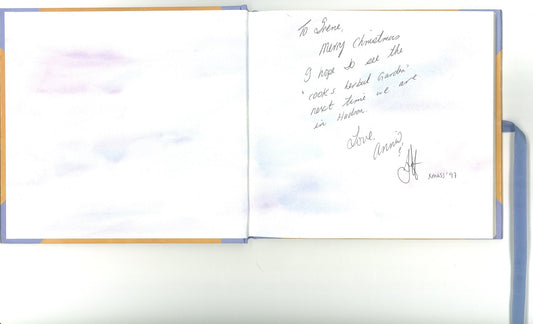 To Irene,
Merry Christmas
I hope to see the
'cook's herbal Garden'
next time we are
in Hudson.
Love,
Annie
&
XMASS '97